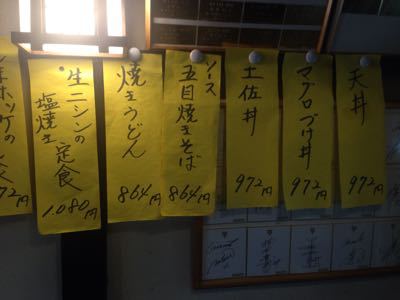 天丼
972円
マグロづけ丼
972円
土佐丼
972円
ソース
五目焼きそば
864円
焼きうどん
864円
生ニシンの
塩焼き定食
1.080円
ホッケの
972円